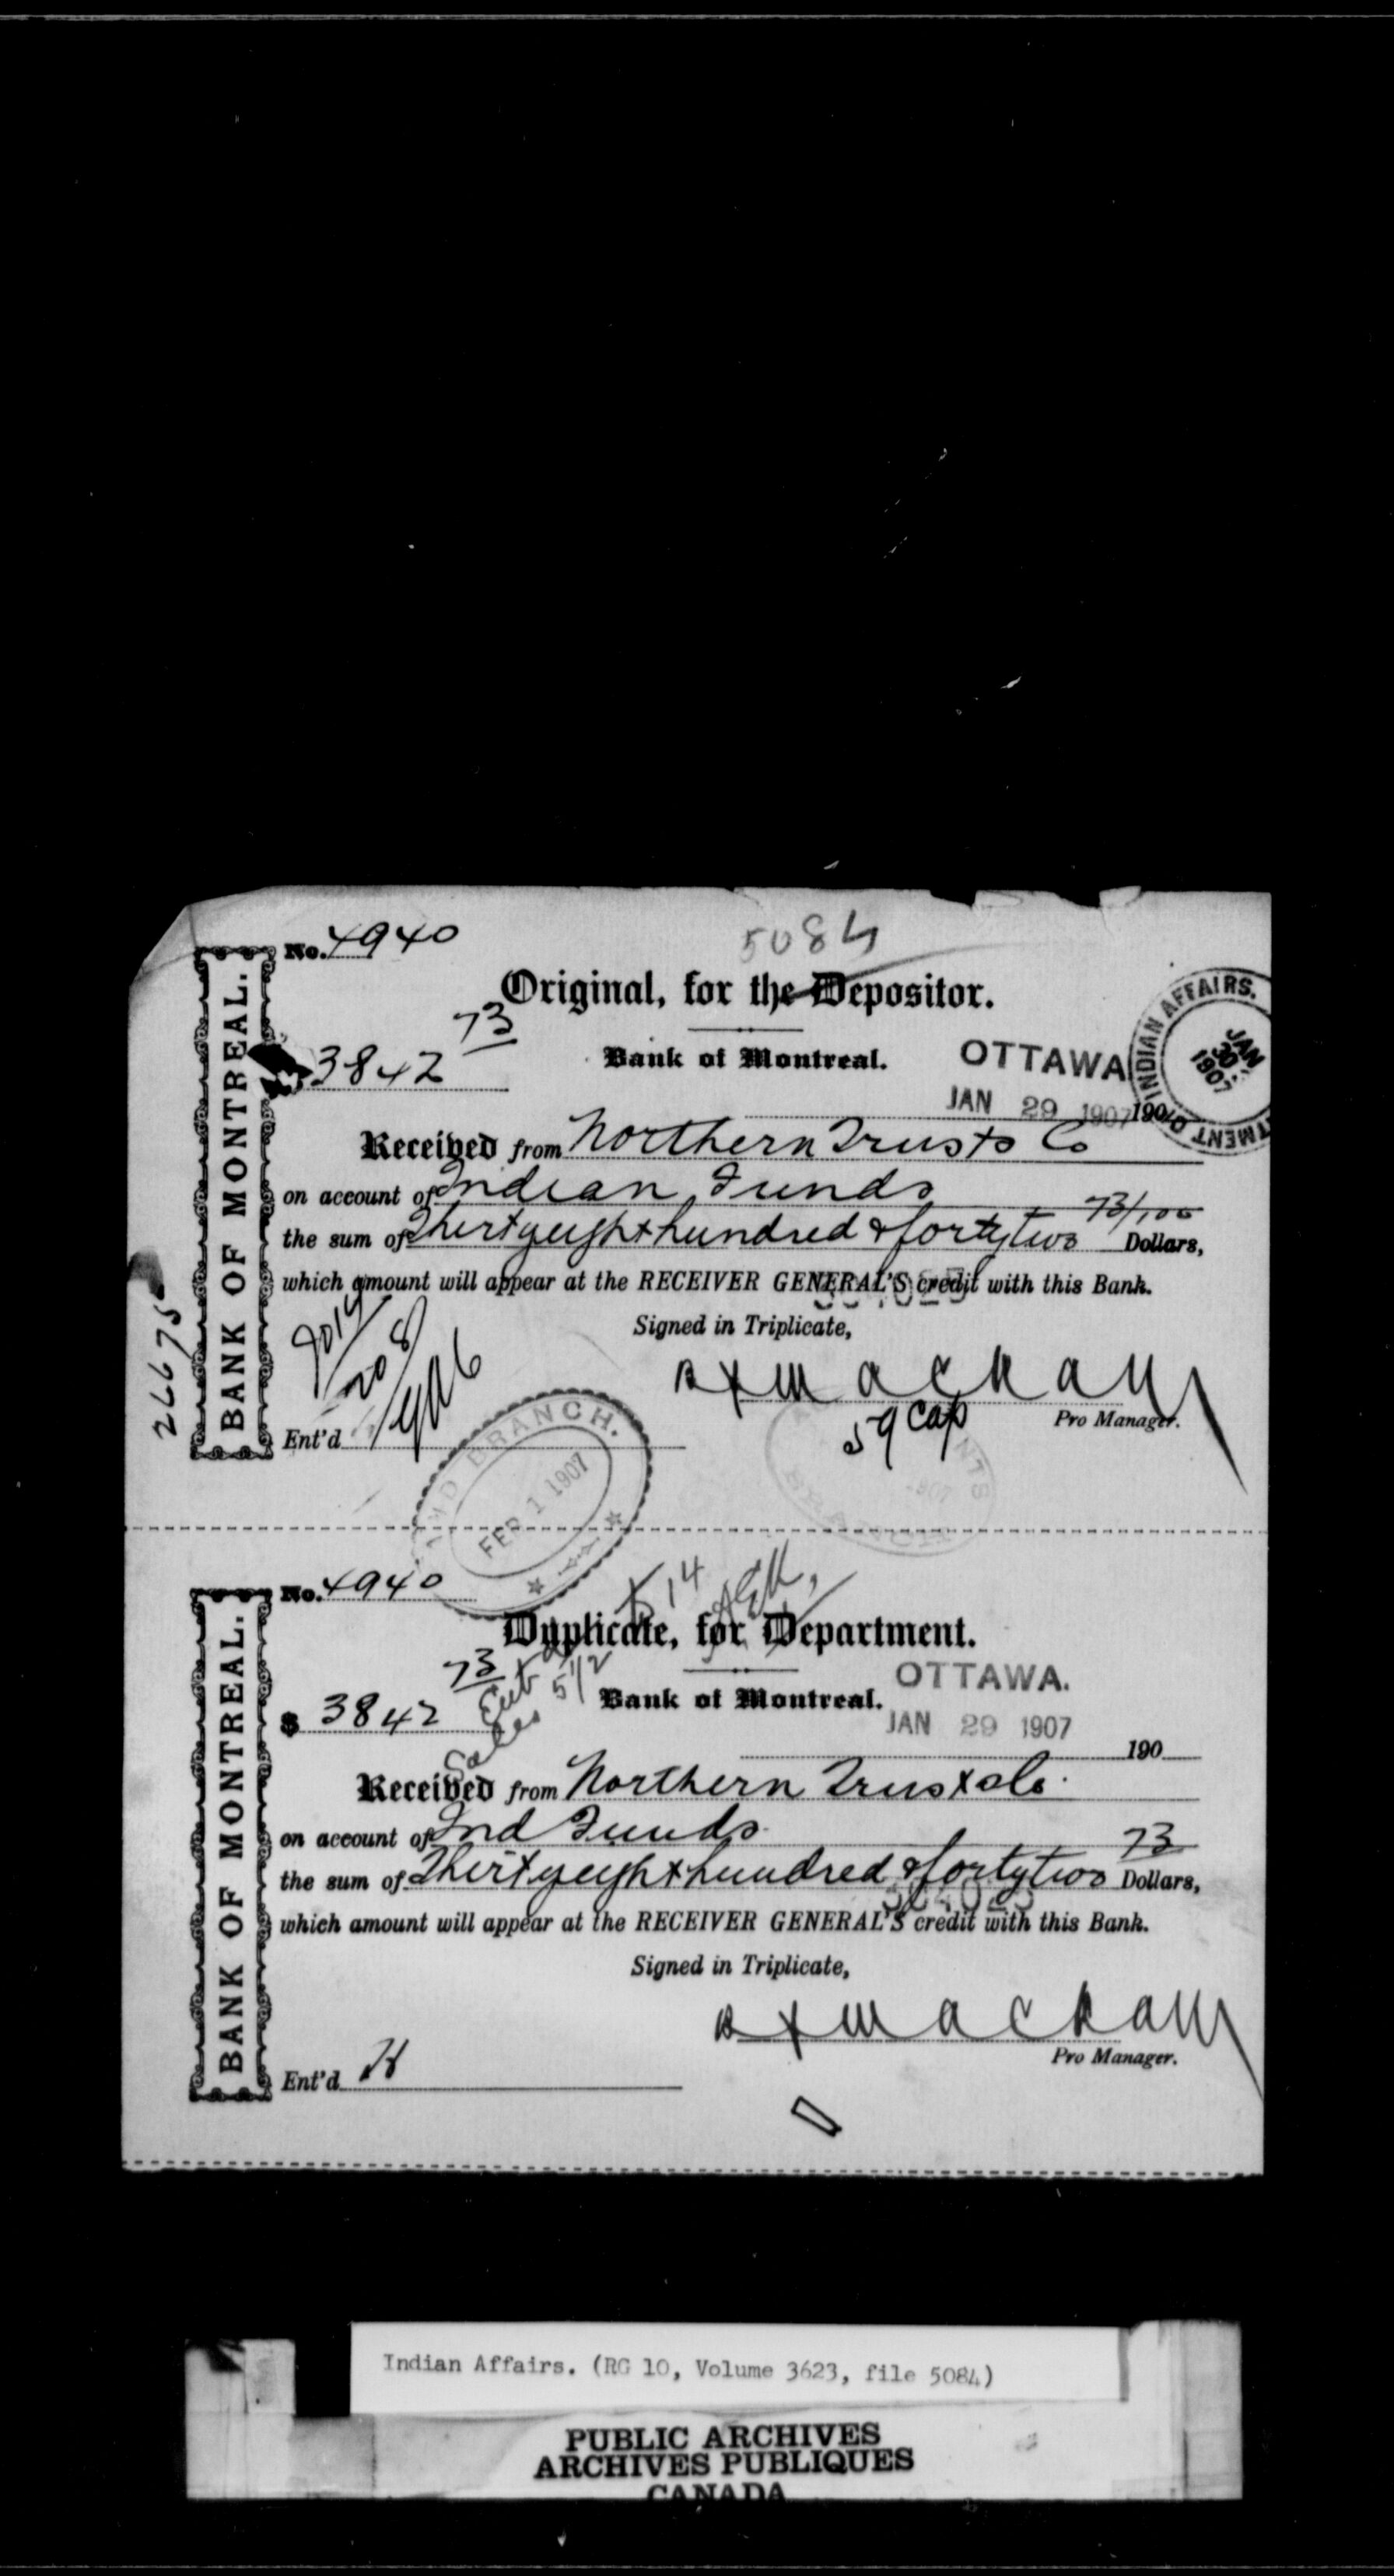 No. 4940
5084
Original, for the Depositor.
3842 73
Bank of Montreal.
OTTAWA
JAN 29 1907 190
INDIAN AFFAIRS.
JAN 30 1907
BANK OF MONTREAL.
Received from Northern Trusts Co
on account of Indian Funds
the sum of Thirtyeight hundred & forty two 73/100 Dollars,
which amount will appear at the RECEIVER GENERAL'S credit with this Bank.
Signed in Triplicate,
26675
Mackay
59 Cap
Pro Manager.
Ent'd
BRANCH.
FEB 1 1907
No. 4940
14
Duplicate, for Department.
$ 3842 73
Bank of Montreal.
OTTAWA.
JAN 29 1907
190
BANK OF MONTREAL.
Received from Northern Trusts Co.
on account of Ind Funds
the sum of Thirtyeight hundred & forty two 73 Dollars,
which amount will appear at the RECEIVER GENERAL'S credit with this Bank.
Signed in Triplicate,
Mackay
Pro Manager.
Ent'd H
Indian Affairs. (RG 10, Volume 3623, file 5084)
PUBLIC ARCHIVES
ARCHIVES PUBLIQUES
CANADA